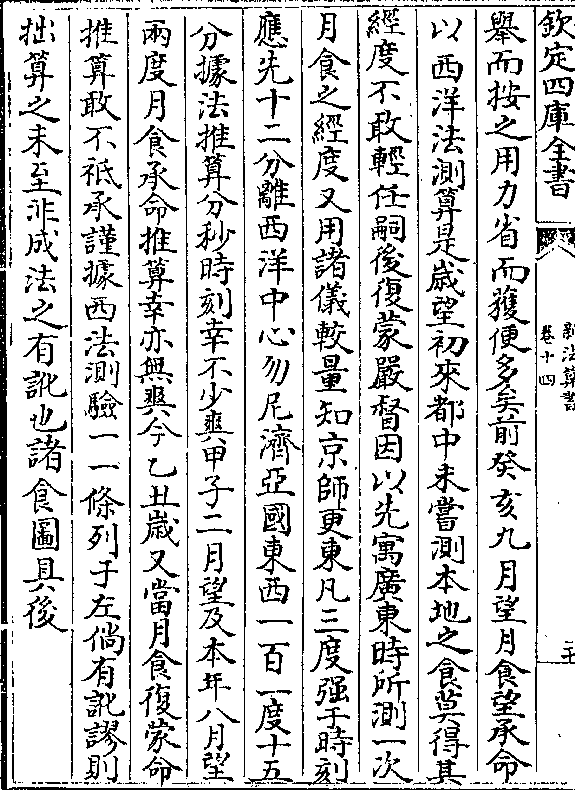 欽定四庫全書
新法算書
卷十四
二十
舉而按之用力省而獲便多矣前癸亥九月望月食望承命
以西洋法測算是歲望初來都中未嘗測本地之食莫得其
經度不敢輕任嗣後復蒙嚴督因以先寓廣東時所測一次
月食之經度又用諸儀較量知京師更東凡三度强于時刻
應先十二分離西洋中心勿尼濟亞國東西一百一度十五
分據法推算分秒時刻幸不少爽甲子二月望及本年八月望
兩度月食承命推算幸亦無爽今乙丑歲又當月食復蒙命
推算敢不祗承謹據西法測驗一一條列于左倘有訛謬則
拙算之未至非成法之有訛也諸食圖具後